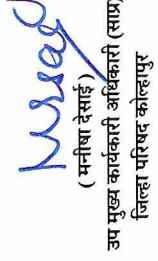 ( मनीषा देसाई )
उप मुख्य कार्यकारी अधिकारी (साप्र)
जिल्हा परिषद कोल्हापुर